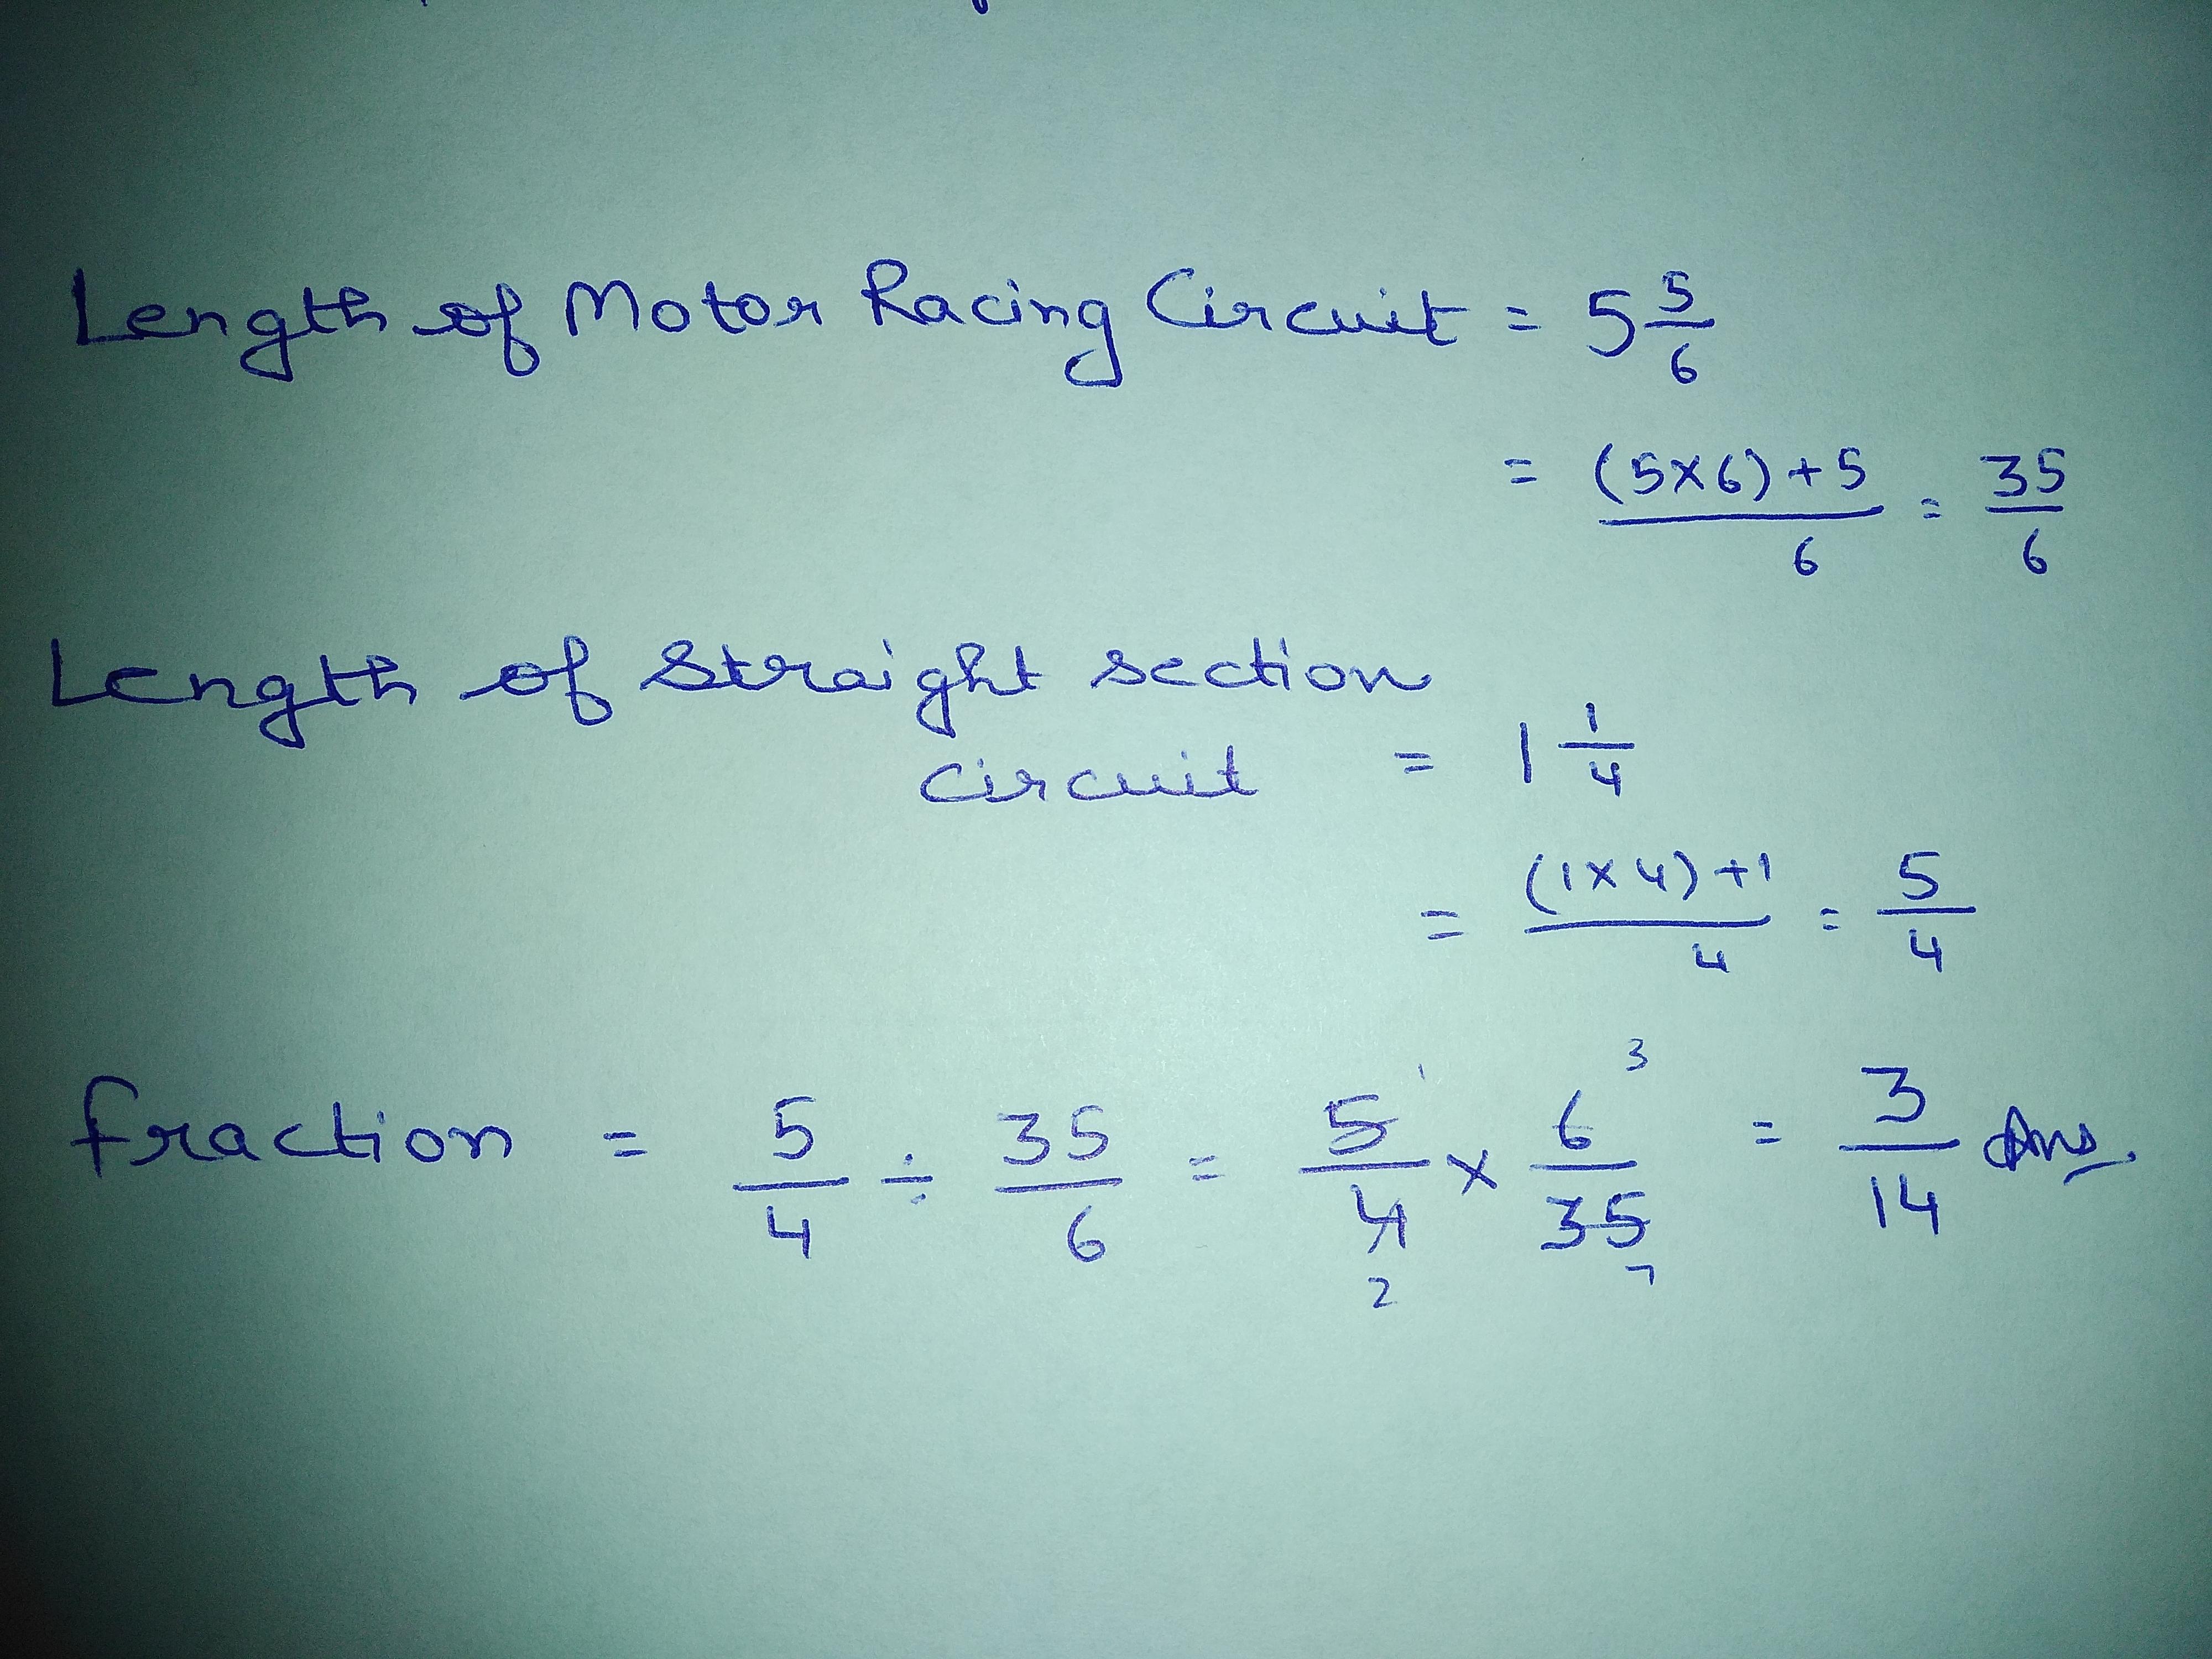 Length of Motor Racing Circuit = 5 5/6
= (5×6)+5/6 = 35/6
Length of Straight section
circuit = 1 1/4
= (1×4)+1/4 = 5/4
fraction = 5/4 ÷ 35/6 = 5 1/4 2 × 6 3/35 7 = 3/14 Ans.